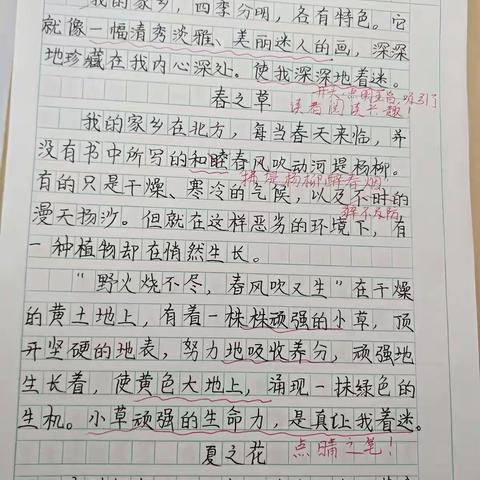 我的家乡，四季分明，各有特色。它
就像一幅清秀淡雅、美丽迷人的画，深深
地珍藏在我内心深处。使我深深地着迷。
开头点明主旨，吸引了
读者阅读兴趣！
春之草
我的家乡在北方，每当春天来临，并
没有书中所写的和睦春风吹动河堤杨柳。
拂堤杨柳醉春烟
有的只是干燥、寒冷的气候，以及不时的
猝不及防
漫天扬沙。但就在这样恶劣的环境下，有
一种植物却在悄然生长。
“野火烧不尽，春风吹又生”在干燥
的黄土地上，有着一株株顽强的小草，顶
开坚硬的地表，努力地吸收养分，顽强地
生长着，使黄色大地上，涌现一抹绿色的
生机。小草顽强的生命力，是真让我着迷。
点睛之笔！
夏之花